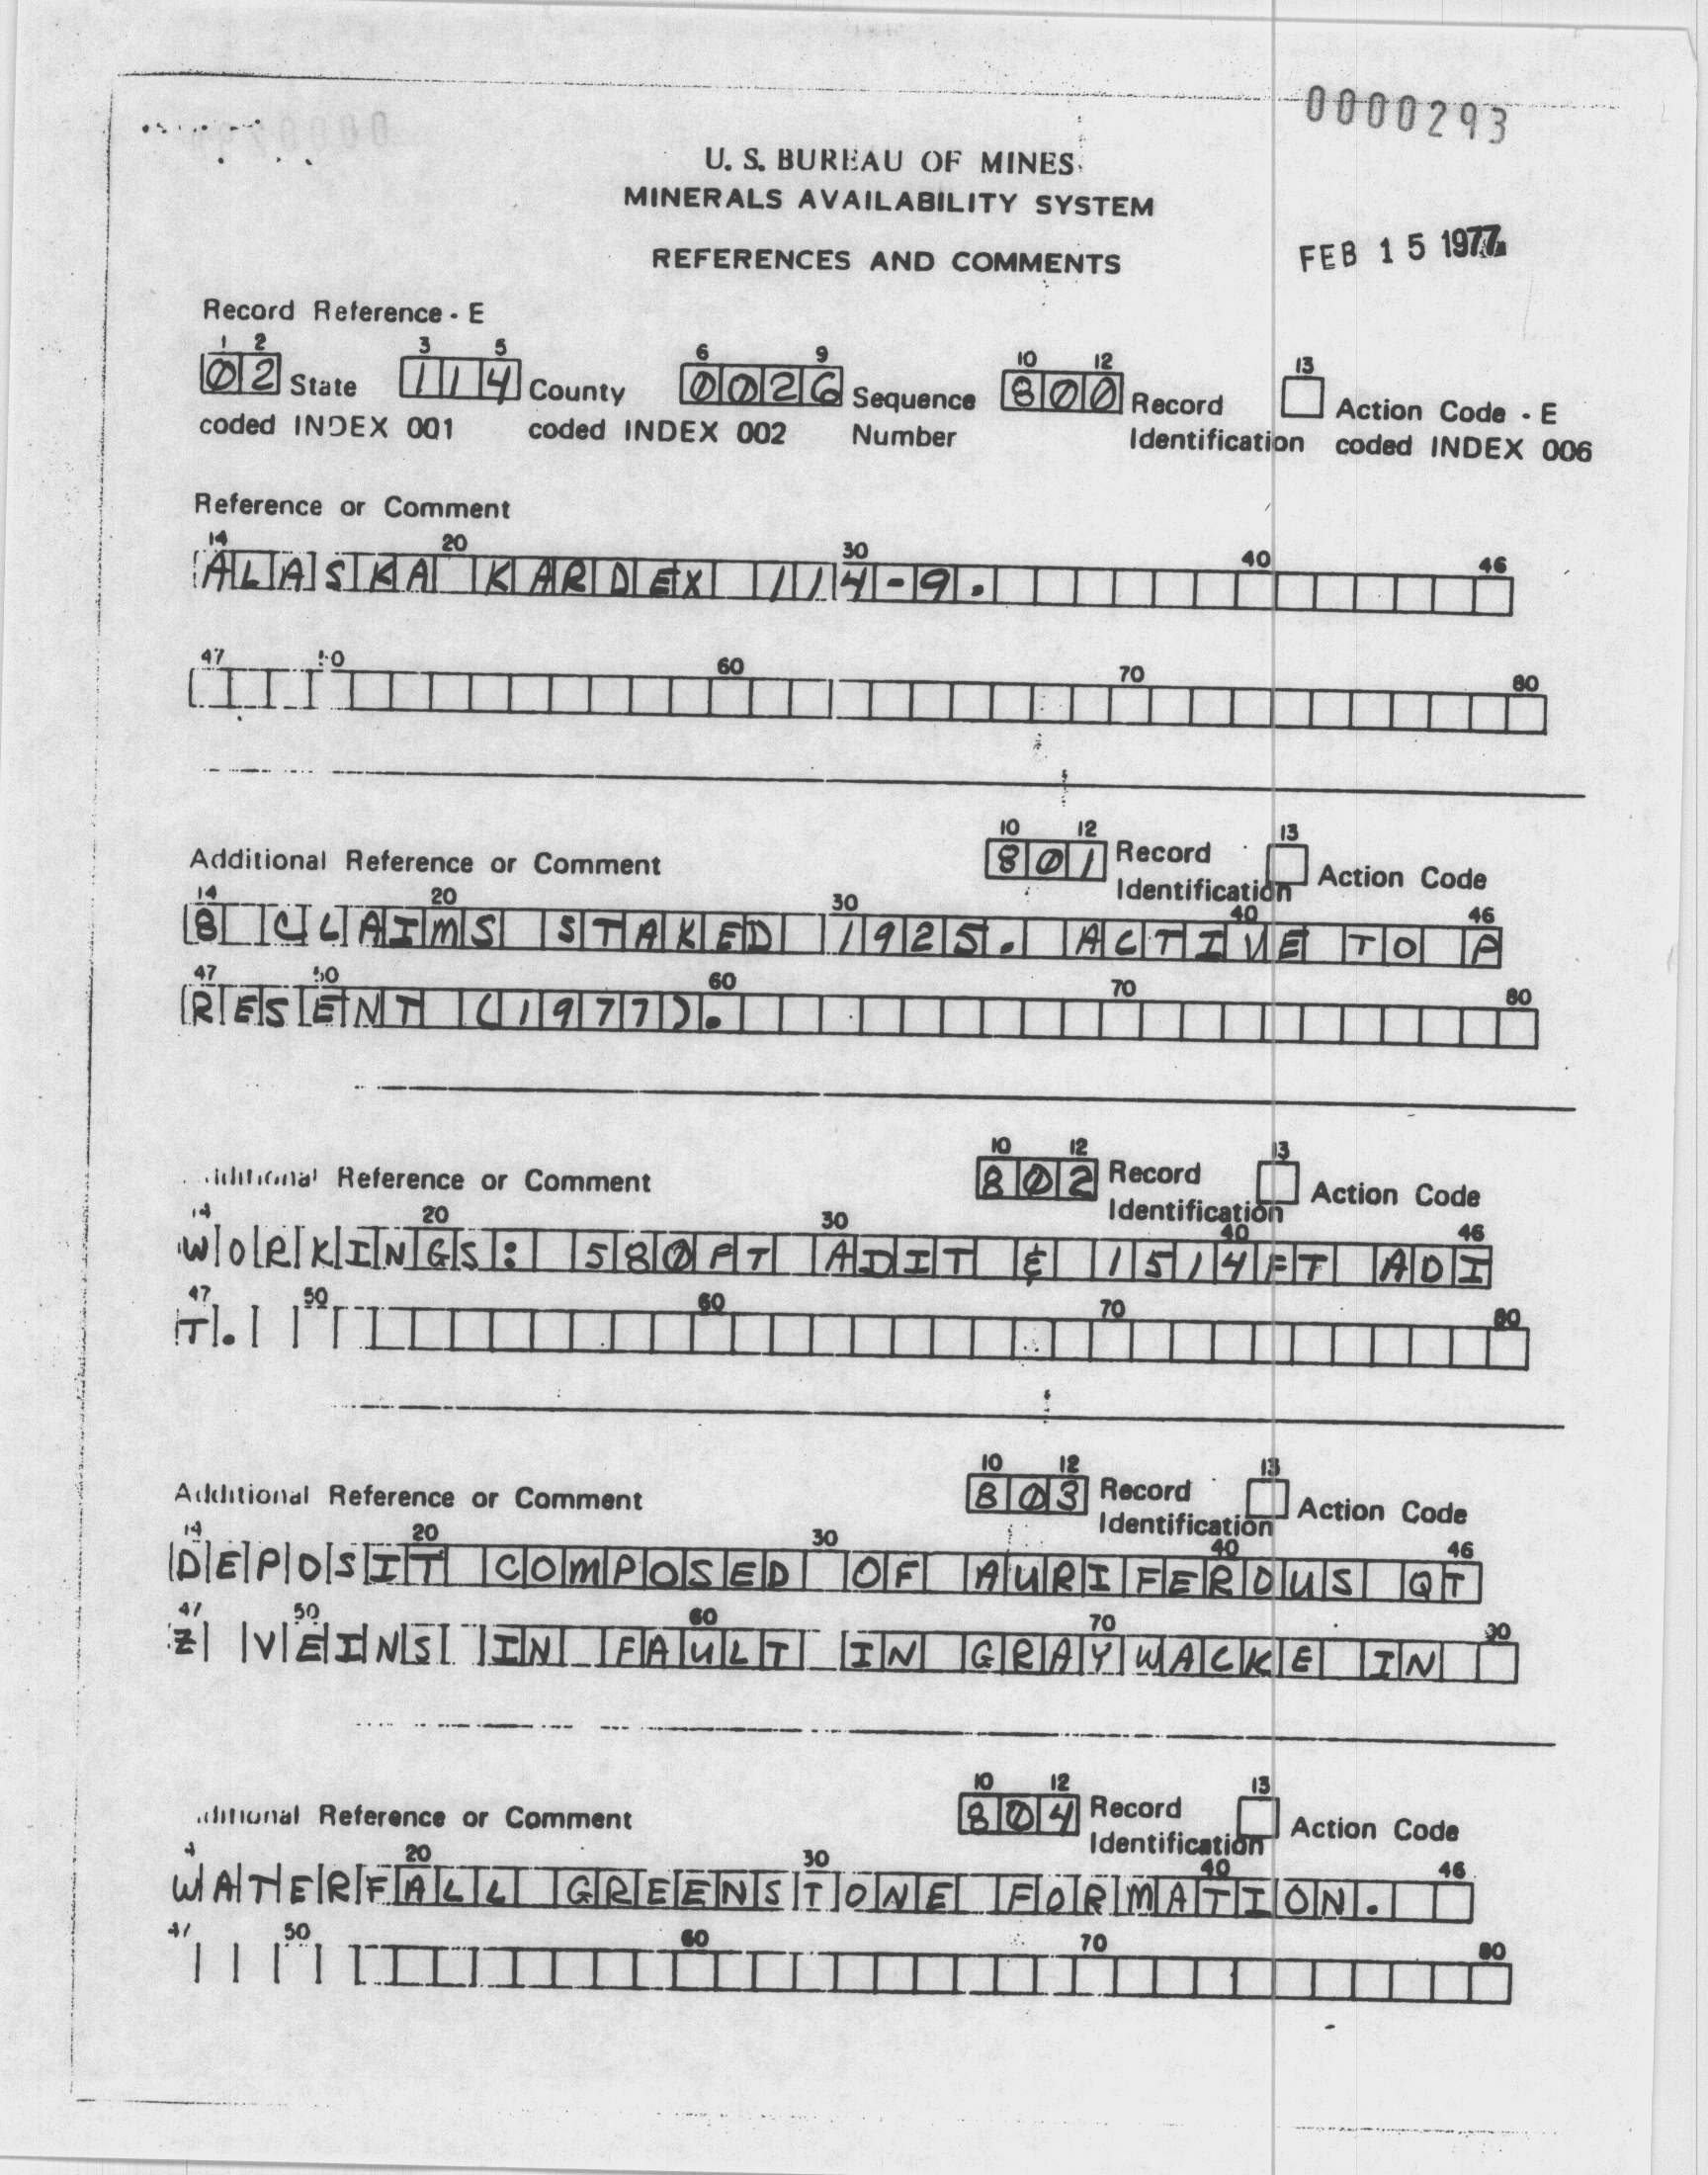 0000293
U. S. BUREAU OF MINES
MINERALS AVAILABILITY SYSTEM
REFERENCES AND COMMENTS
FEB 15 1977
Record Reference - E
1 2 3 5 6 9 10 12 13
02 State 114 County 0026 Sequence 800 Record Action Code - E
coded INDEX 001 coded INDEX 002 Number Identification coded INDEX 006
Reference or Comment
14 20 30 40 46
ALASKA KARDEX 114-9.
47 50 60 70 80
10 12 13
Additional Reference or Comment 801 Record Identification Action Code
14 20 30 40 46
8 CLAIMS STAKED 1925. ACTIVE TO P
47 50 60 70 80
RESENT (1977).
10 12 13
Additional Reference or Comment 802 Record Identification Action Code
14 20 30 40 46
WORKINGS: 580FT ADIT & 1514FT ADI
47 50 60 70 80
T.
10 12 13
Additional Reference or Comment 803 Record Identification Action Code
14 20 30 40 46
DEPOSIT COMPOSED OF AURIFEROUS QT
47 50 60 70 80
Z VEINS IN FAULT IN GRAYWACKE IN
10 12 13
Additional Reference or Comment 804 Record Identification Action Code
4 20 30 40 46
WATERFALL GREENSTONE FORMATION.
47 50 60 70 80